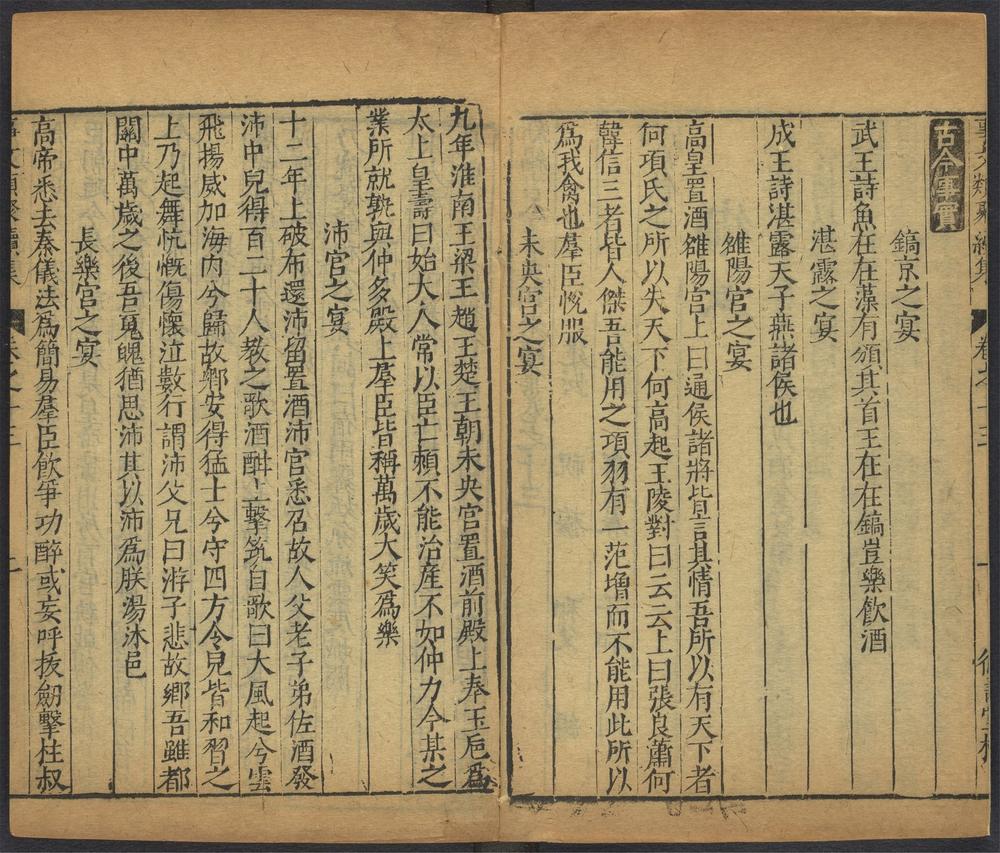 古今事實
鎬京之宴
武王詩魚在在藻有頒其首王在在鎬豈樂飲酒
湛露之宴
成王詩湛露天子燕諸侯也
雒陽宮之宴
高皇置酒雒陽宮上曰通侯諸將皆言其情吾所以有天下者
何項氏之所以失天下何高起王陵對曰云云上曰張良蕭何
韓信三者皆人傑吾能用之項羽有一范增而不能用此所以
爲我禽也羣臣悅服
未央宮之宴
九年淮南王梁王趙王楚王朝未央宮置酒前殿上奉玉卮爲
太上皇壽曰始大人常以臣亡賴不能治產不如仲力今某之
業所就孰與仲多殿上羣臣皆稱萬歲大笑爲樂
沛宮之宴
十二年上破布還沛留置酒沛宮悉召故人父老子弟佐酒發
沛中兒得百二十人教之歌酒酣上擊筑自歌曰大風起兮雲
飛揚威加海內兮歸故鄉安得猛士兮守四方令兒皆和習之
上乃起舞忼慨傷懷泣數行謂沛父兄曰游子悲故鄉吾雖都
關中萬歲之後吾䰟魄猶思沛其以沛爲朕湯沐邑
長樂宮之宴
高帝悉去秦儀法爲簡易羣臣飲爭功醉或妄呼拔劒擊柱叔